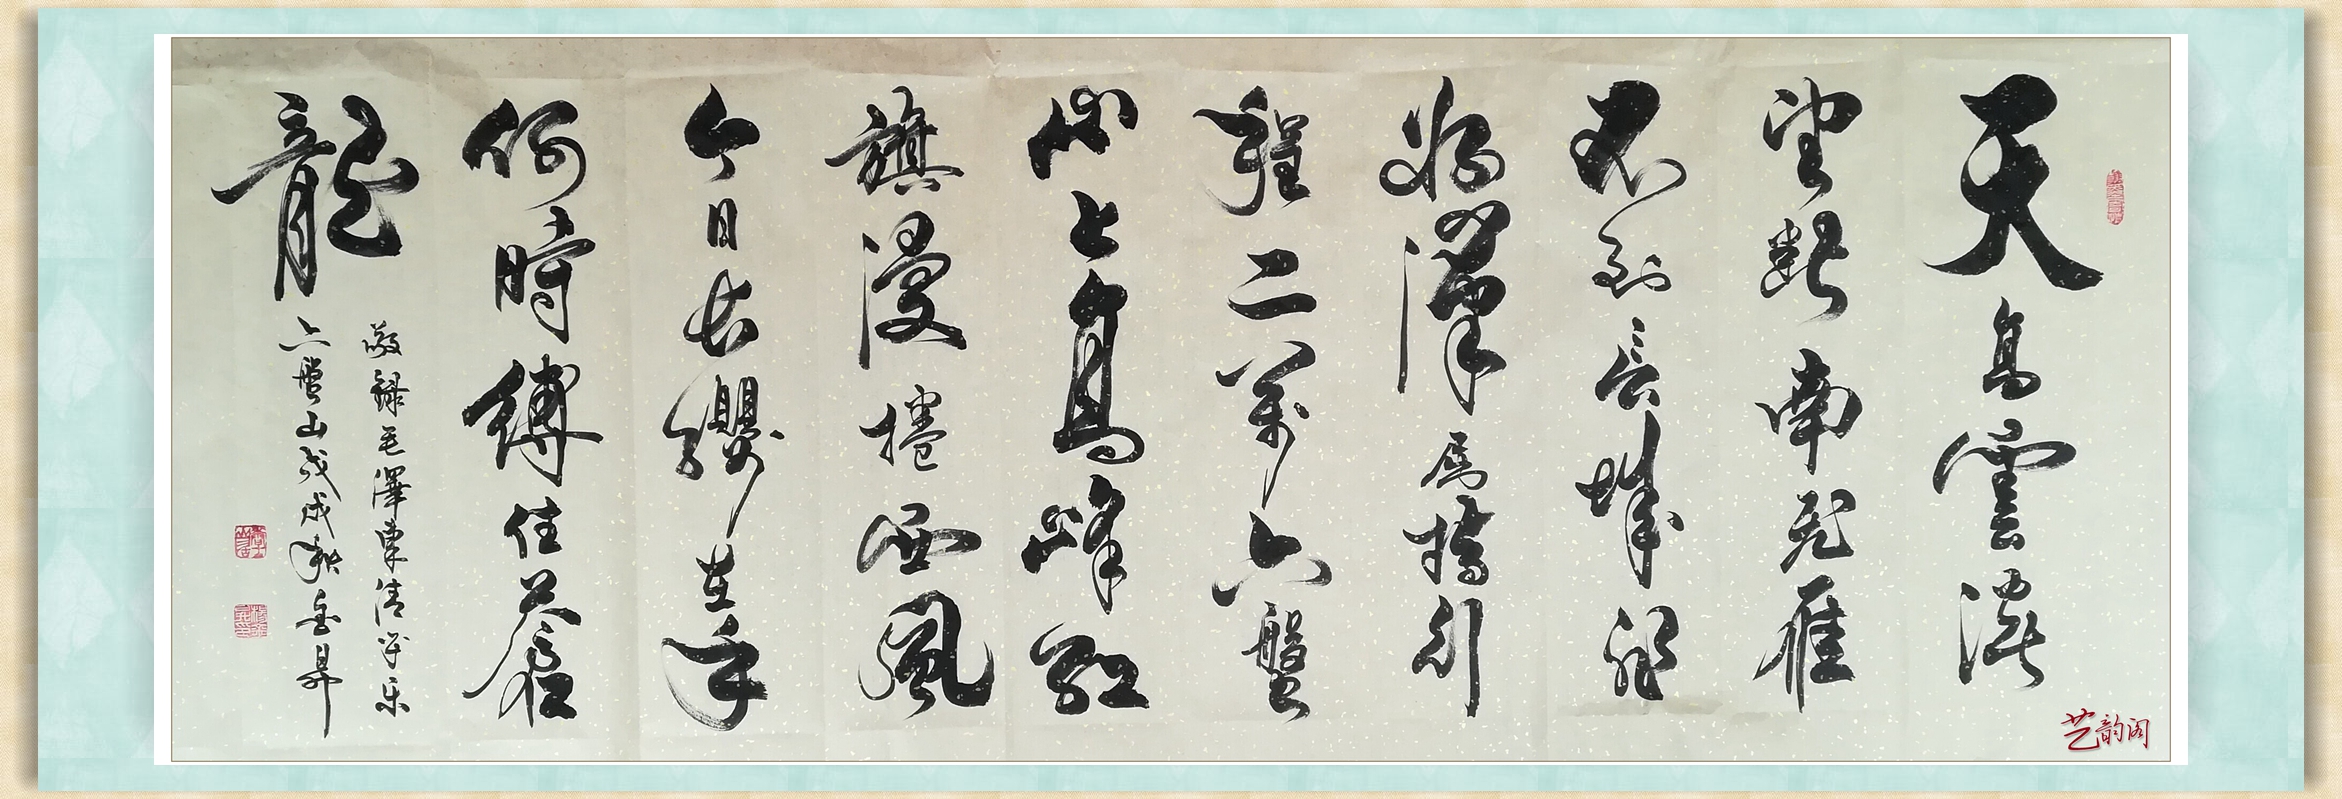 天高雲淡
望斷南飛雁
不到長城非
好漢屈指行
程二萬六盤
山上高峰紅
旗漫捲西風
今日長纓在手
何時縛住蒼
龍
敬録毛澤東清平乐
六盤山戊戌秋
艺韵阁